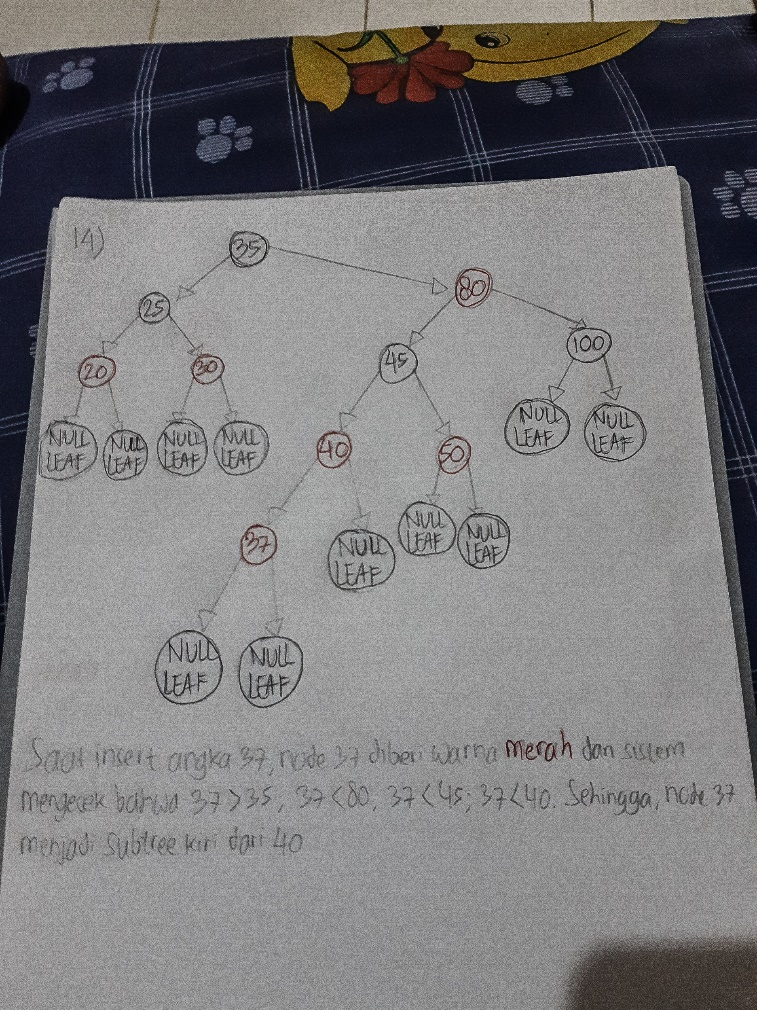 14)
35
80
25
45
100
20
30
NULL LEAF
NULL LEAF
NULL LEAF
NULL LEAF
40
50
NULL LEAF
NULL LEAF
37
NULL LEAF
NULL LEAF
NULL LEAF
NULL LEAF
NULL LEAF
Saat insert angka 37, node 37 diberi warna merah dan sistem
mengecek bahwa 37>35, 37<80, 37<45; 37<40. Sehingga, node 37
menjadi subtree kiri dari 40